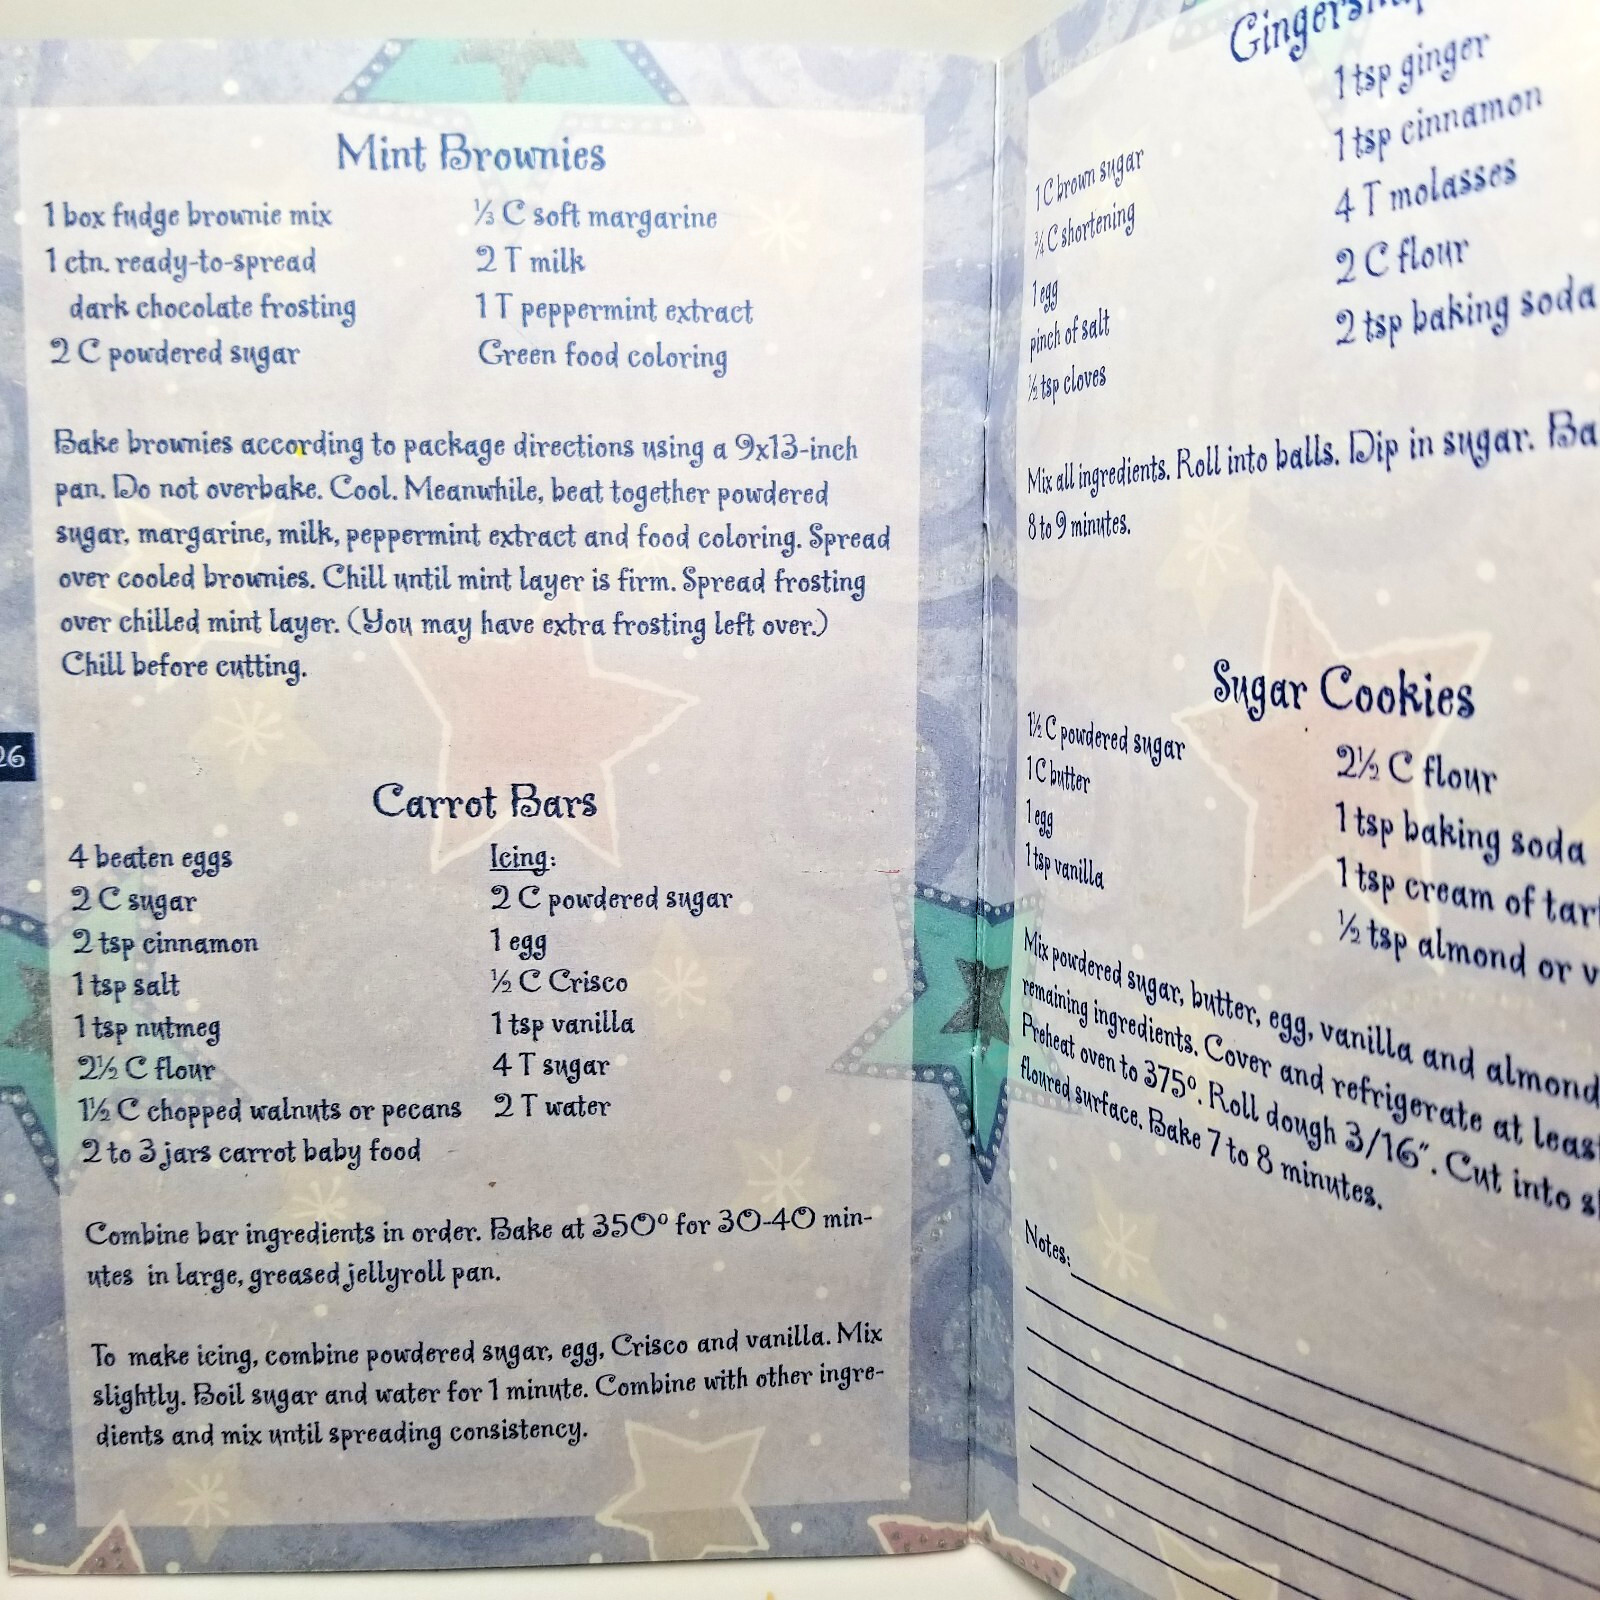 Mint Brownies
1 box fudge brownie mix
1 ctn. ready-to-spread
dark chocolate frosting
2 C powdered sugar
⅓ C soft margarine
2 T milk
1 T peppermint extract
Green food coloring
Bake brownies according to package directions using a 9x13-inch
pan. Do not overbake. Cool. Meanwhile, beat together powdered
sugar, margarine, milk, peppermint extract and food coloring. Spread
over cooled brownies. Chill until mint layer is firm. Spread frosting
over chilled mint layer. (You may have extra frosting left over.)
Chill before cutting.
26
Carrot Bars
4 beaten eggs
2 C sugar
2 tsp cinnamon
1 tsp salt
1 tsp nutmeg
2½ C flour
1½ C chopped walnuts or pecans
2 to 3 jars carrot baby food
Icing:
2 C powdered sugar
1 egg
½ C Crisco
1 tsp vanilla
4 T sugar
2 T water
Combine bar ingredients in order. Bake at 350° for 30-40 min-
utes in large, greased jellyroll pan.
To make icing, combine powdered sugar, egg, Crisco and vanilla. Mix
slightly. Boil sugar and water for 1 minute. Combine with other ingre-
dients and mix until spreading consistency.
1 C brown sugar
¾ C shortening
1 egg
pinch of salt
½ tsp cloves
1 tsp ginger
1 tsp cinnamon
4 T molasses
2 C flour
2 tsp baking soda
Mix all ingredients. Roll into balls. Dip in sugar.
8 to 9 minutes.
Sugar Cookies
1½ C powdered sugar
1 C butter
1 egg
1 tsp vanilla
2½ C flour
1 tsp baking soda
1 tsp cream of
½ tsp almond or
Mix powdered sugar, butter, egg, vanilla and almond
remaining ingredients. Cover and refrigerate at
Preheat oven to 375°. Roll dough 3/16". Cut into
floured surface. Bake 7 to 8 minutes.
Notes: